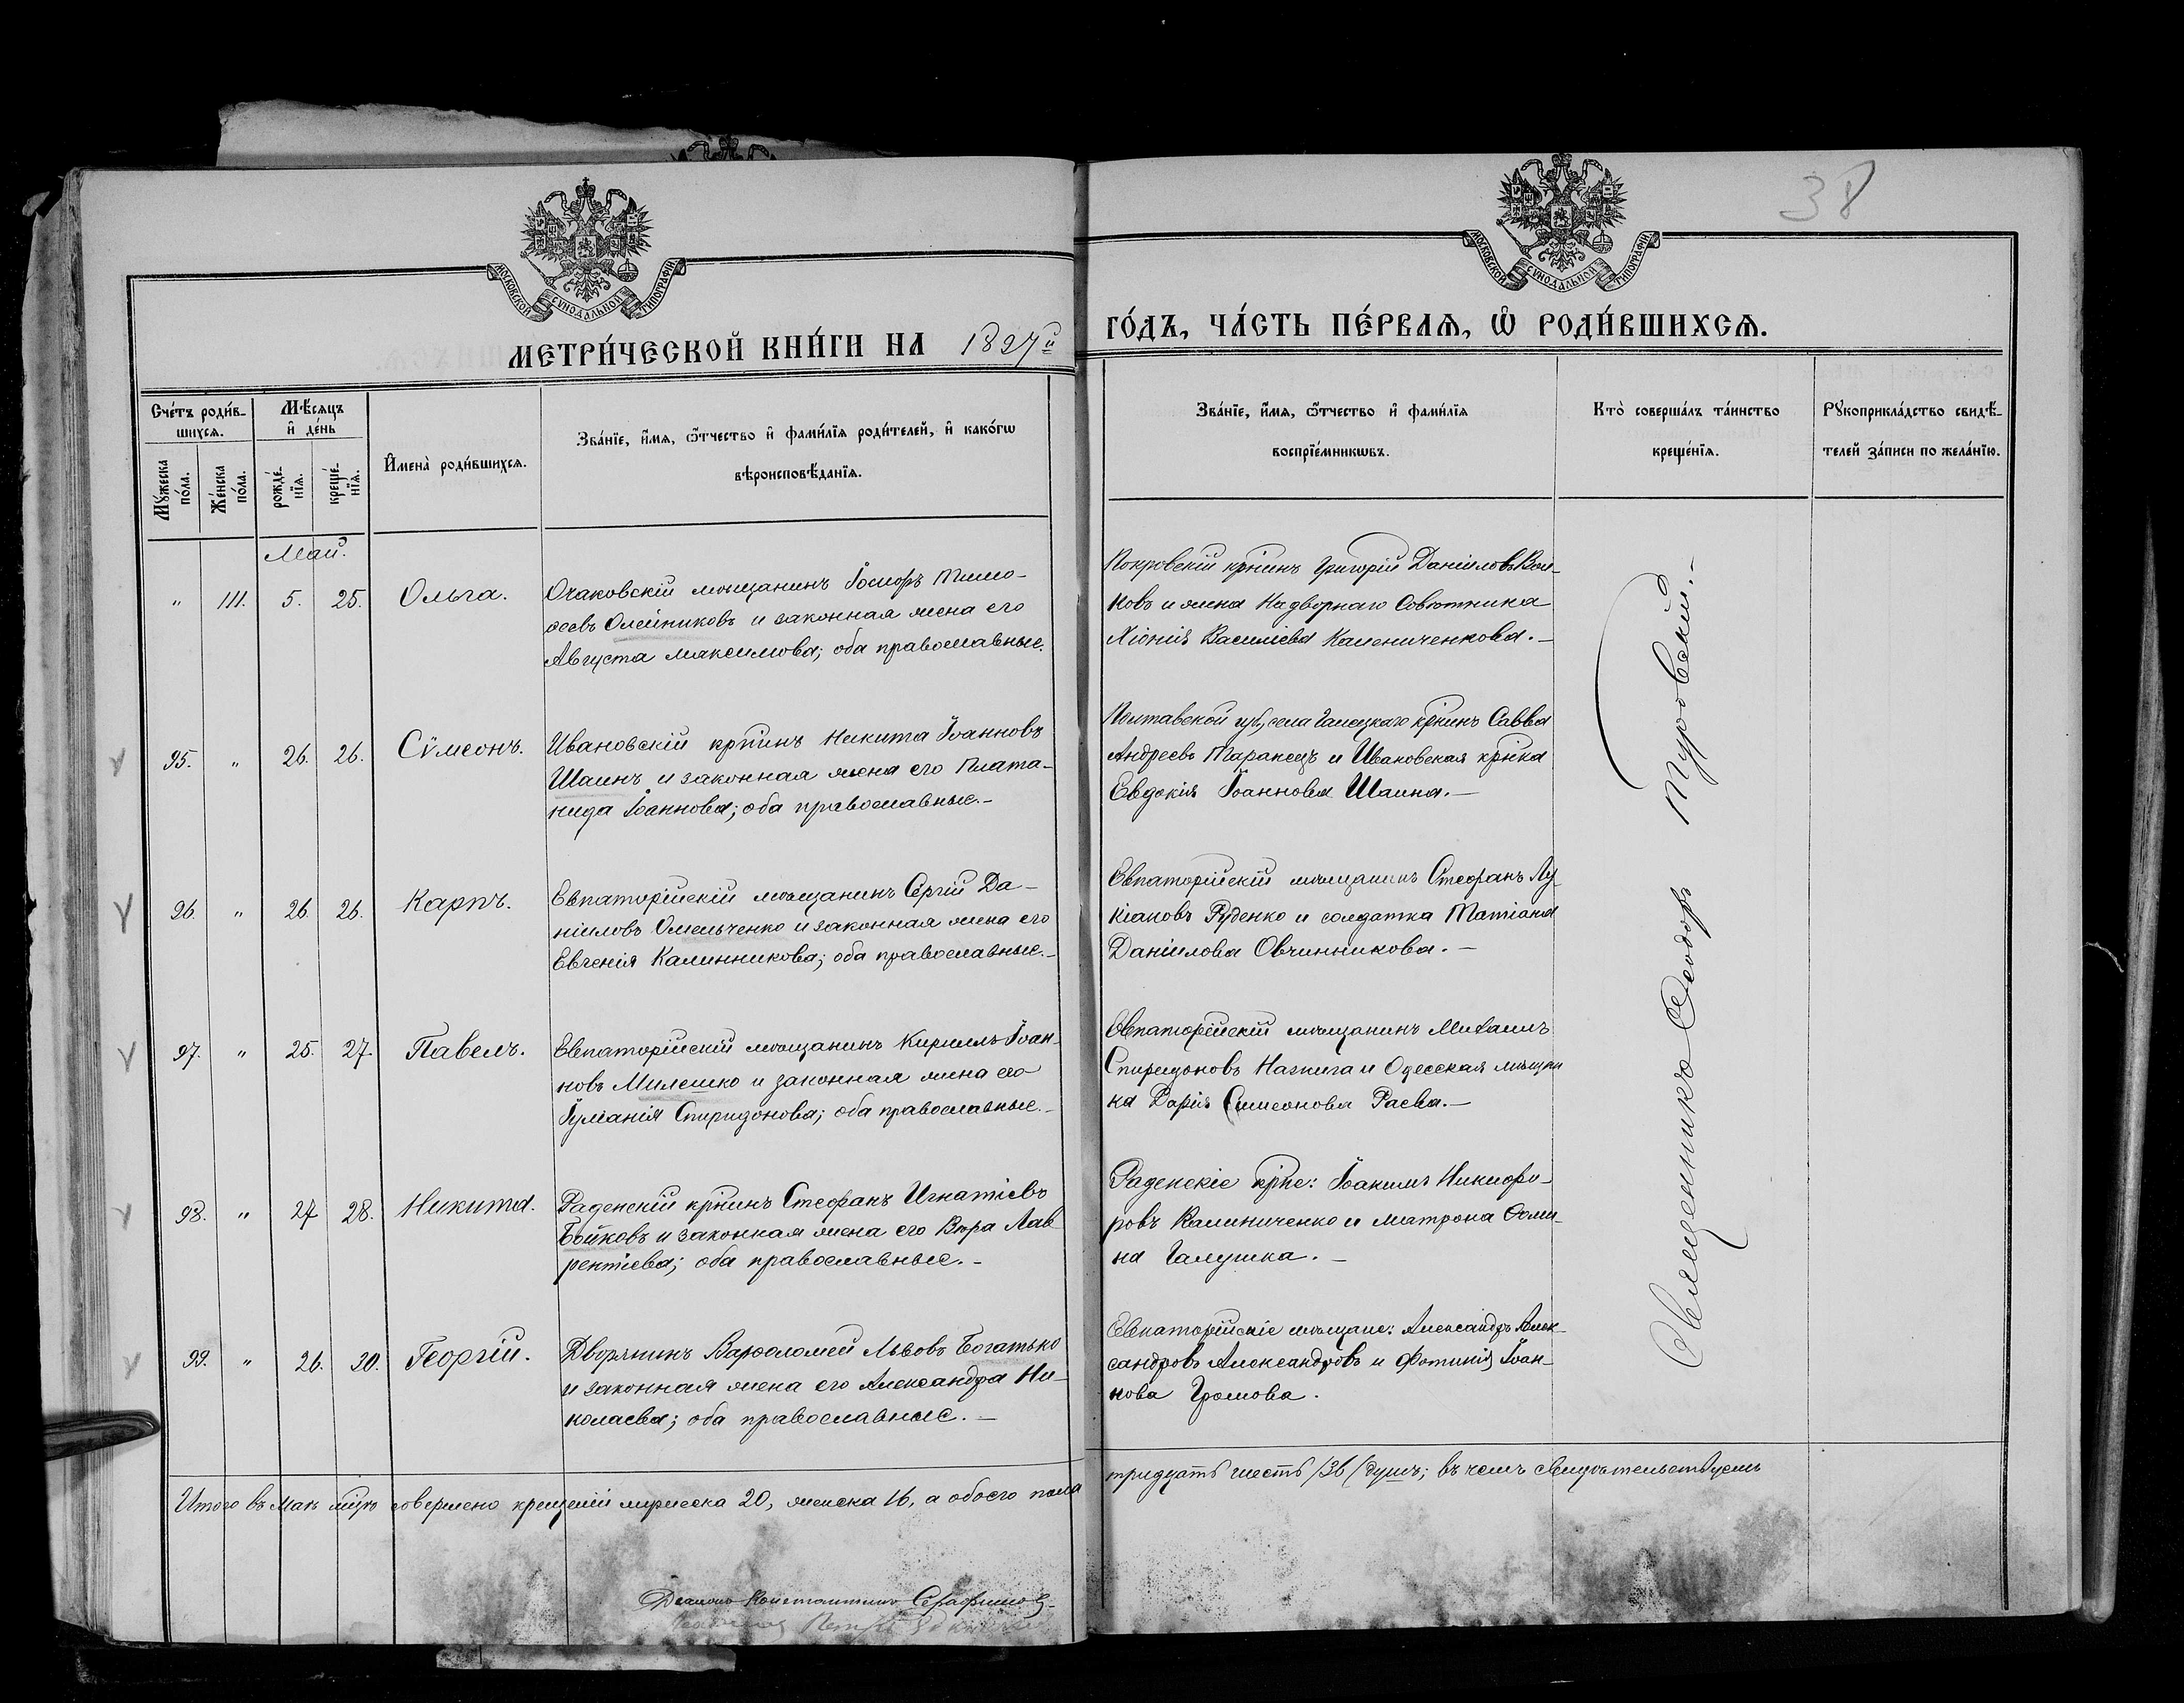 38
МОСКОВСКОЙ СѴНОДАЛЬНОЙ ТИПОГРАФІИ
МОСКОВСКОЙ СѴНОДАЛЬНОЙ ТИПОГРАФІИ
МЕТРИ́ЧЕСКОЙ КНИ́ГИ НА 1897й
ГО́ДЪ, ЧА́СТЬ ПЕ́РВАѦ, Ѡ҆ РОДИ́ВШИХСѦ.
Сче́тъ роди́в-
шихсѧ.
Мꙋжеска по́ла.
Же́нска по́ла.
Мѣ́сѧцъ и҆ де́нь
рожде́нїѧ.
креще́нїѧ.
И҆мена̀ роди́вшихсѧ.
Зва́нїе, и҆́мѧ, ѻ҆́тчество и҆ фами́лїѧ роди́телей, и҆ како́гѡ
вѣроисповѣ́данїѧ.
Зва́нїе, и҆́мѧ, ѻ҆́тчество и҆ фами́лїѧ
воспрїе́мникѡвъ.
Кто̀ соверша́лъ та́инство
креще́нїѧ.
Рꙋкоприкла́дство свидѣ́-
телей за́писи по жела́нїю.
Май.
" 111. 5. 25. Ольга.
Очаковскій мѣщанинъ Іосифъ Тимо-
ѳеевъ Олейниковъ и законная жена его
Августа Максимова; оба православные.
Покровскій кр҃нинъ Григорій Даніиловъ
и жена Надворнаго Совѣтника
Хіонія Василіева Калениченкова.—
95. " 26. 26. Сѵмеонъ.
Ивановскій кр҃нинъ Никита Іоанновъ
Шаинъ и законная жена его Плата-
нида Іоаннова; оба православные.-
Полтавской губ, села Галецкаго кр҃нинъ Савва
Андреевъ Таранецъ и Ивановская кр҃нка
Евдокія Іоаннова Шаина.—
96. " 26. 26. Карпъ.
Евпаторійскій мѣщанинъ Сергій Да-
ніиловъ Омельченко и законная жена его
Евгенія Калинникова; оба православные.-
Евпаторійскій мѣщанинъ Стефанъ Лу-
кіановъ Руденко и солдатка Татіана
Даніилова Овчинникова.—
97. " 25. 27. Павелъ.
Евпаторійскій мѣщанинъ Кириллъ Іоан-
новъ Милешко и законная жена его
Іуліанія Спиридонова; оба православные.-
Евпаторійскій мѣщанинъ Михаилъ
Спиридоновъ и Одесская мѣщан
ка Дарія Симеонова Раева.—
98. " 27 28. Никита.
Раденскій кр҃нинъ Стефанъ Игнатіевъ
Бойковъ и законная жена его Вѣра Лав
рентіева; оба православные.-
Раденскіе кр҃не: Іоакимъ Никифо-
ровъ Калиниченко и Матрона Ѳоми-
на Галушка.—
99. " 26. 30. Георгій.
Дворянинъ Варѳоломей Львовъ Богатько
и законная жена его Александра Ни-
колаева; оба православные.—
Евпаторійскіе мѣщане: Александръ Алек-
сандровъ Александровъ и Фотинія Іоан-
нова Громова.
Священникъ Ѳеодоръ Туровскій.-
Итого въ маѣ мцѣ совершено крещеній мужеска 20, женска 16, а обоего пола
тридцать шесть /36/ душъ; въ чемъ свидѣтельствуемъ
Діаконъ Константинъ Серафимовъ